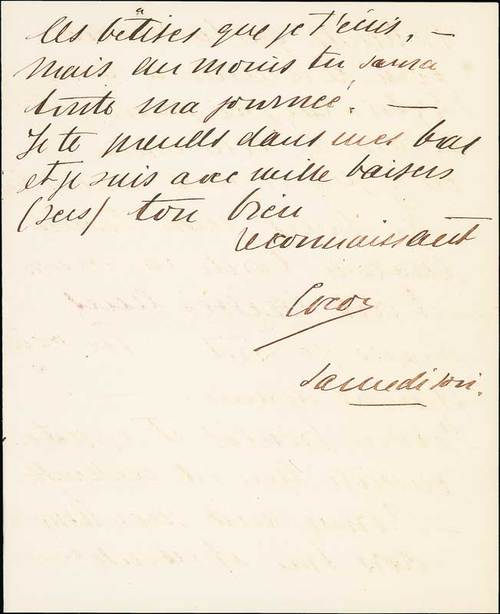 les bêtises que je t'écris, —
mais au moins tu sauras
toute ma journée. —
Je te prends dans mes bras
et je suis avec mille baisers
(secs) ton bien
reconnaissant
Cocoy
Samedi soir.